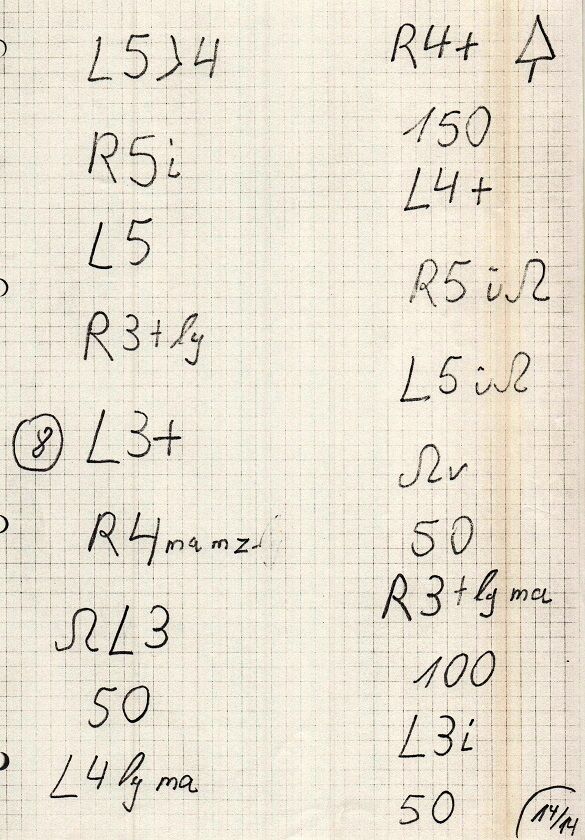 L5>4
R5i
L5
R3+lg
8 L3+
R4 ma mz
Ω L3
50
L4 lg ma
R4+
150
L4+
R5 iΩ
L5 iΩ
Ωv
50
R3+lg ma
100
L3i
50
14/14